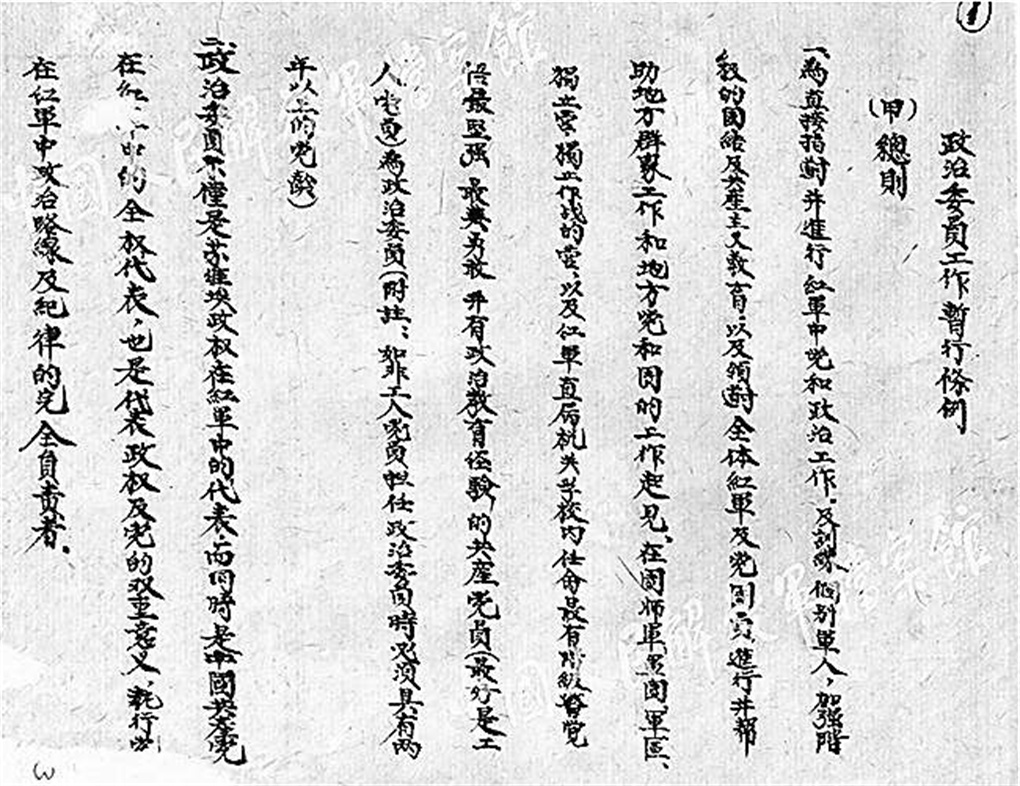 1
政治委員工作暫行條例
(甲)總則
一、為直接指導并進行紅軍中党和政治工作、及訓練個别軍人，加强階
級的團結及共產主义教育，以及領導全体紅軍及党團員進行并帮
助地方群眾工作和地方党和團的工作起見、在團师軍軍團軍區、
獨立營獨立作战的營，以及紅軍直属机关学校内任命最有階級覺
悟最坚强最英勇敢并有政治教育经驗的共産党員(最好是工
人党員)為政治委員(附註、如非工人党員担任政治委員時必須具有兩
年以上的党齡)
二、政治委員不僅是苏維埃政权在紅軍中的代表，而同時是中國共產党
在紅軍中的全权代表、也是代表政权及党的双重意义、執行党
在紅軍中政治路線及紀律的完全負責者.